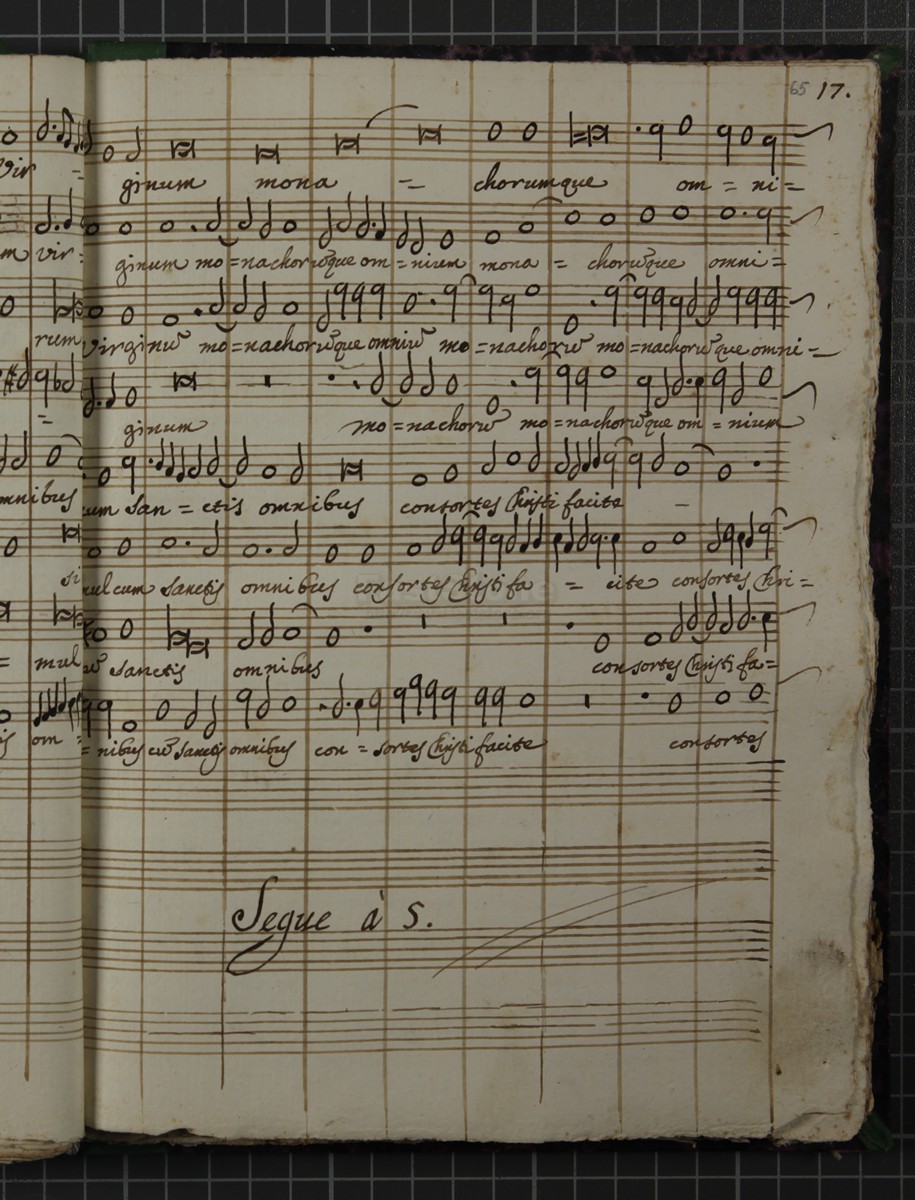 65 17.
Vir = ginum mona = chorumque om = ni =
m vir = ginum mo = nachorũque om = nium mona = chorũque omni =
rum virginũ mo = nachorũque omniũ mo = nachorũ mo = nachorũque omni =
= ginum mo = nachorũ mo = nachorũque om = nium
omnibus cum San = ctis omnibus consortes Christi facite =
si mul cum Sanctis omnibus consortes Christi fa = cite consortes Chri =
= mul cũ Sanctis omnibus consortes Christi fa =
is om = nibus cũ Sanctis omnibus con = sortes Christi facite consortes
Segue à 5.